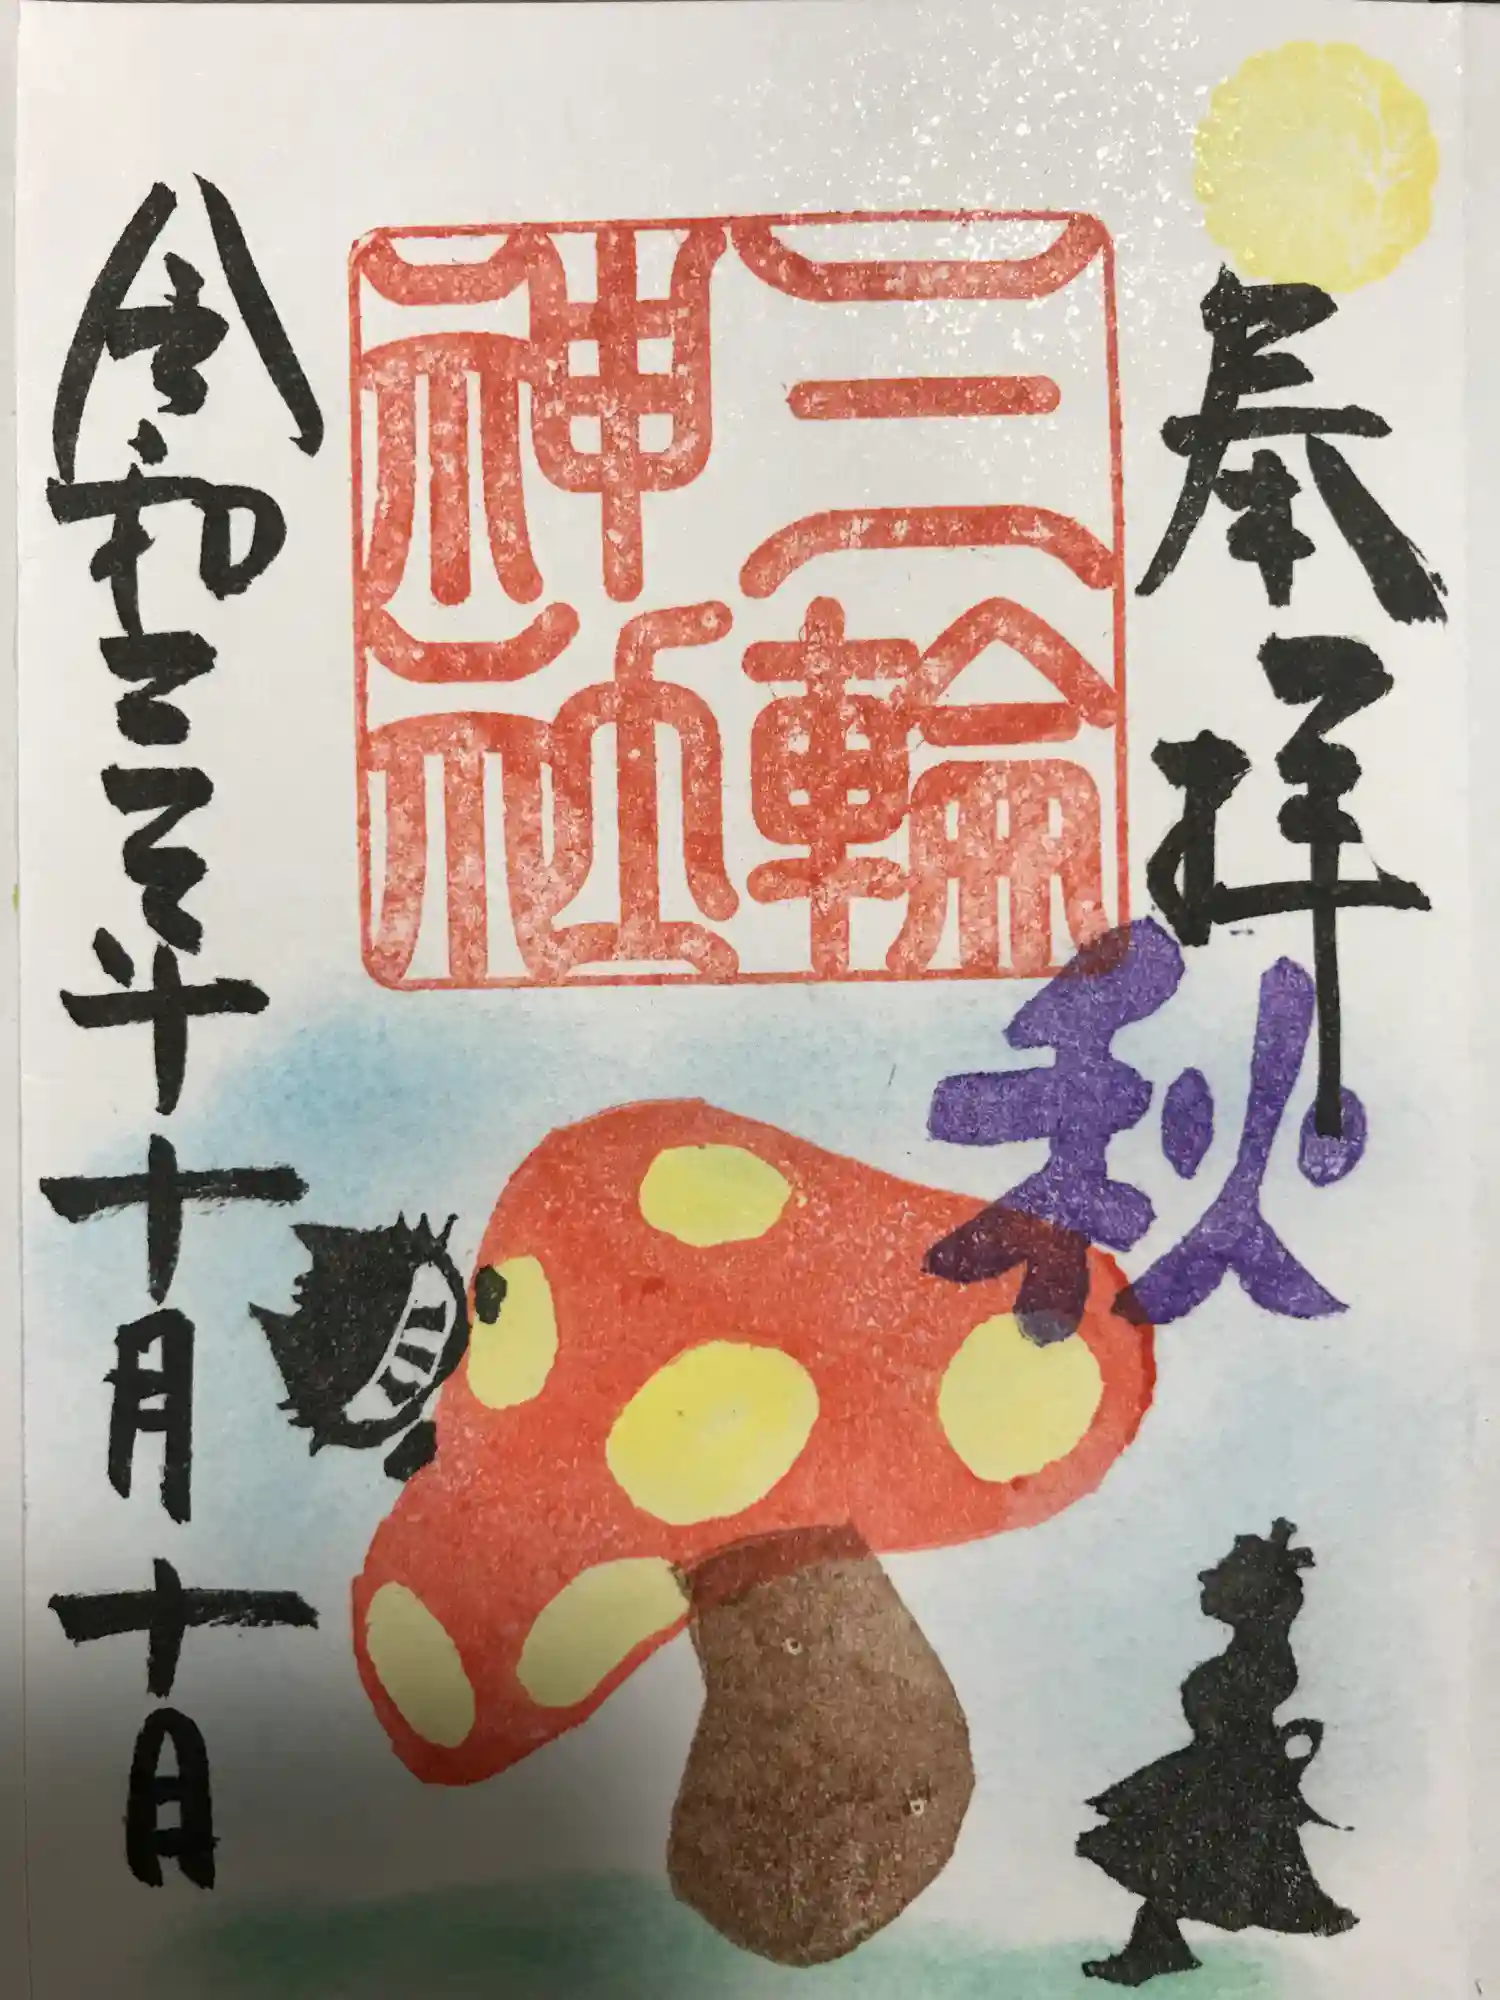 奉拝
秋
三輪
神社
令和三年十月十日